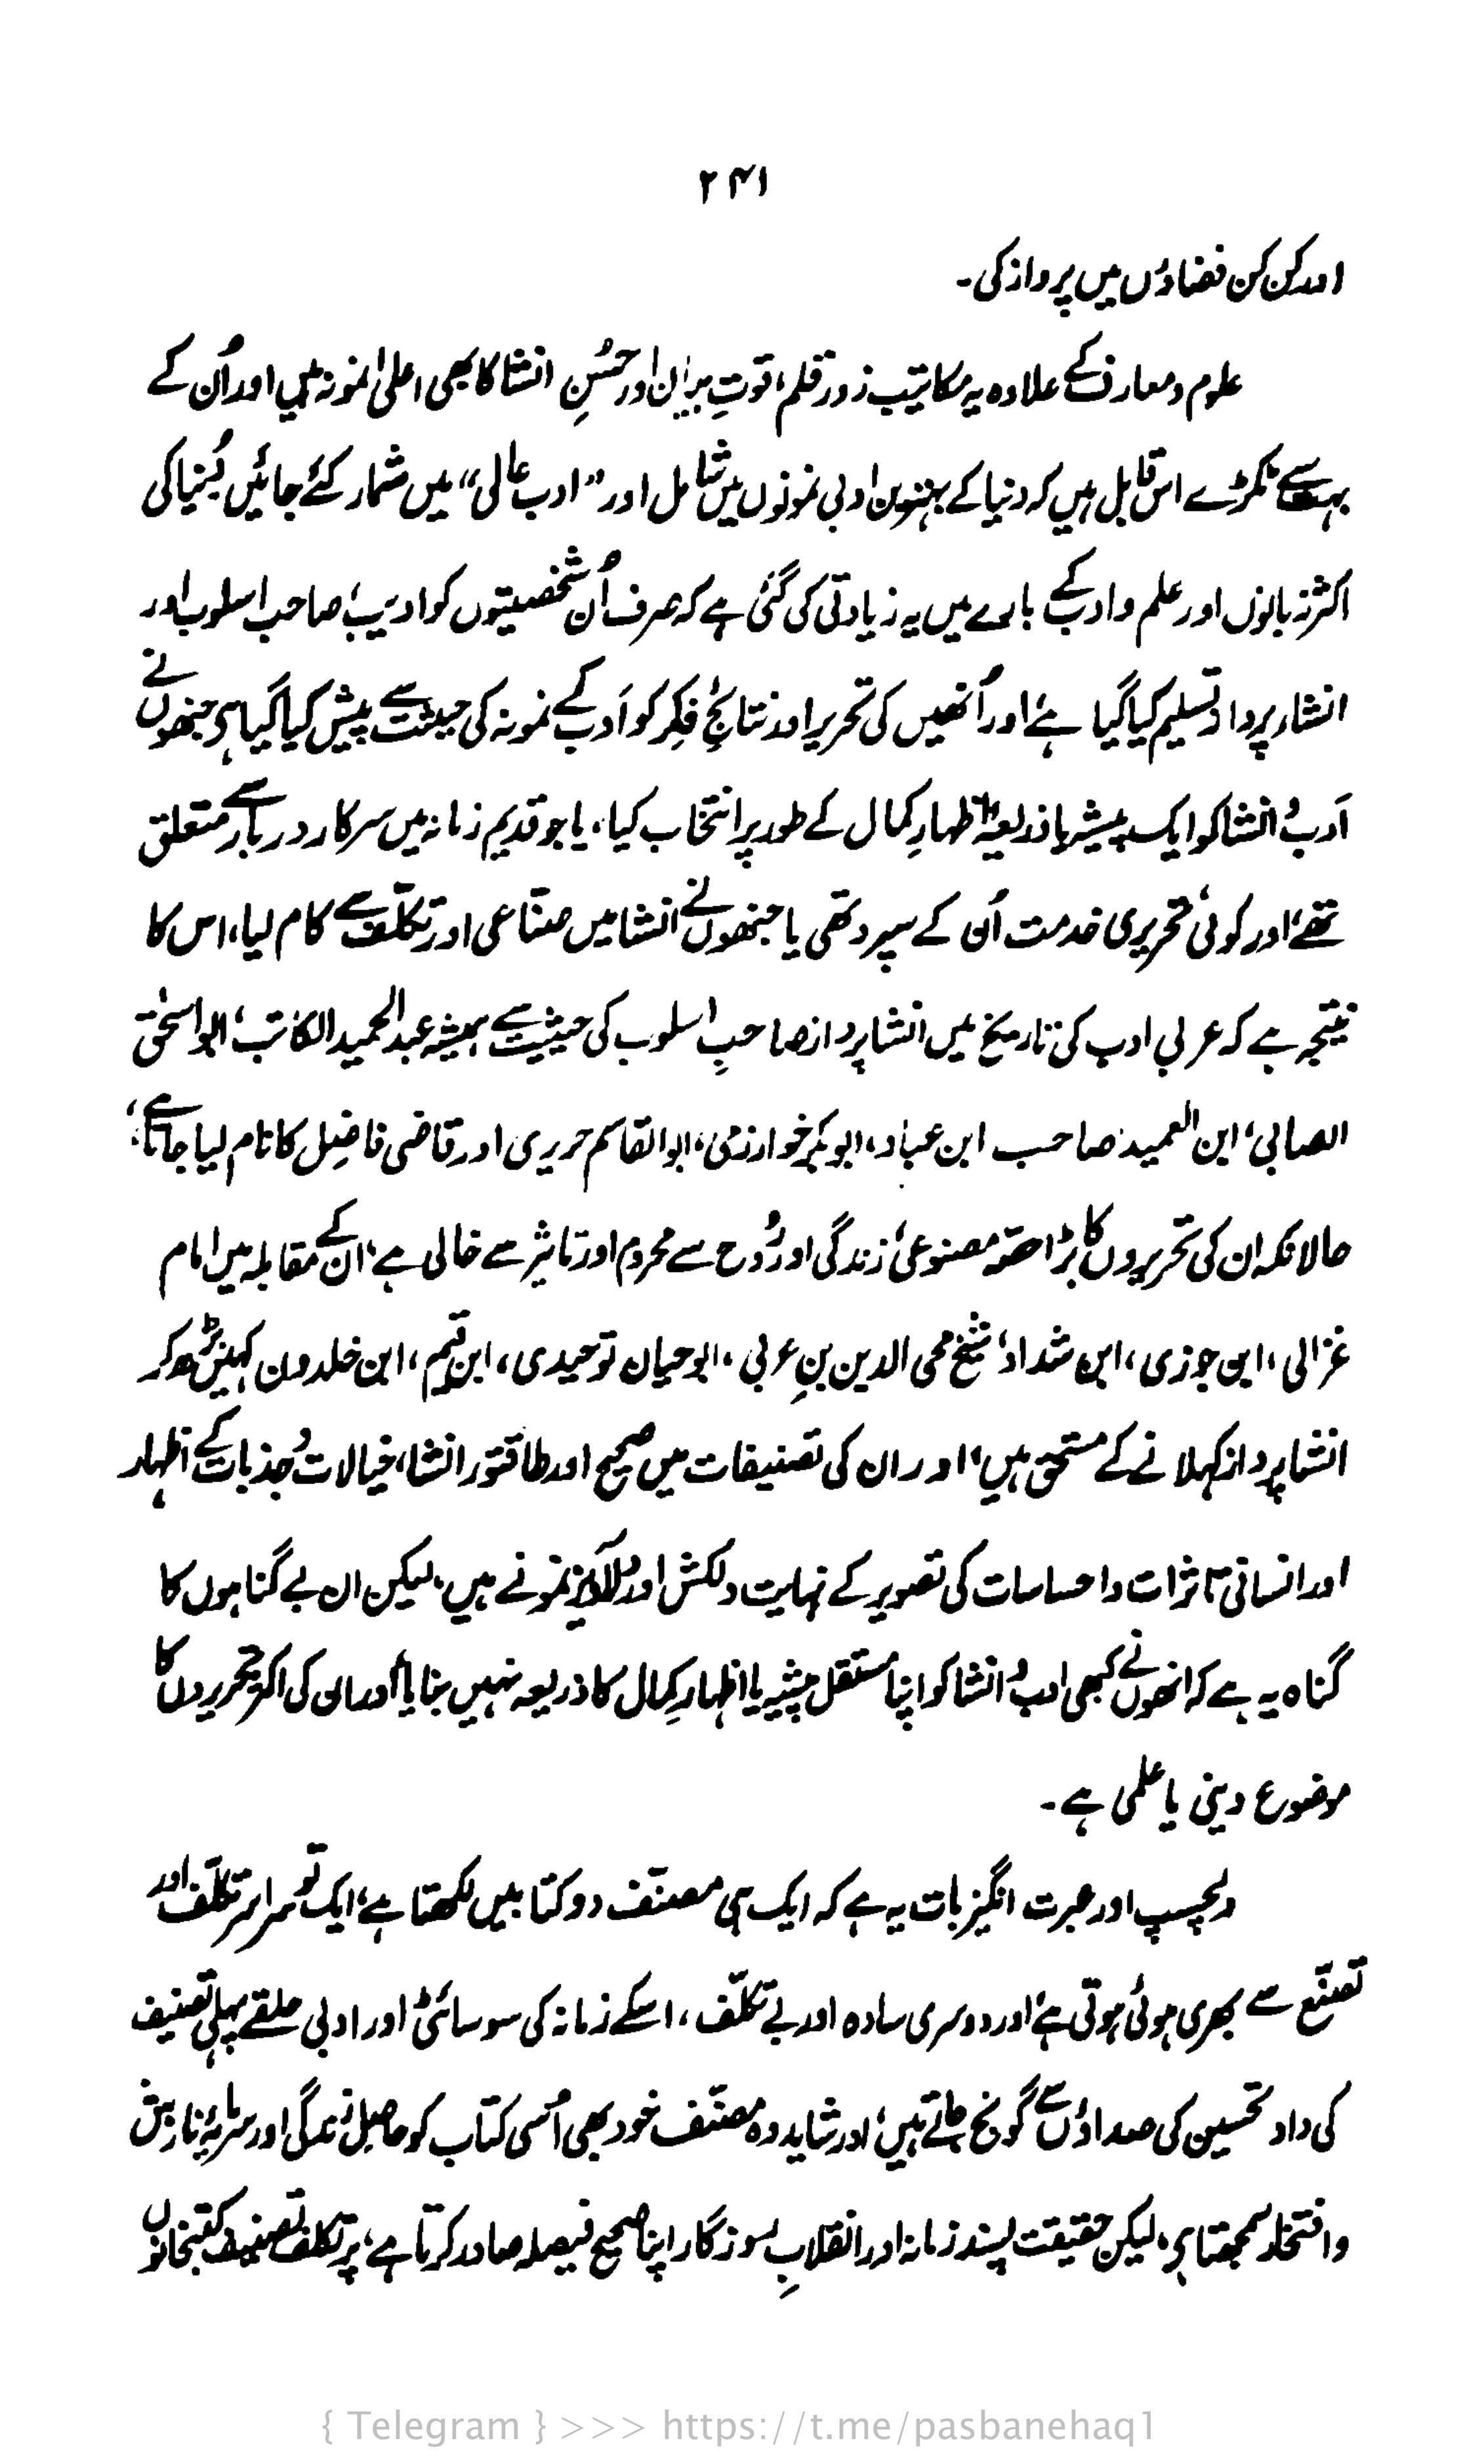 ۲۴۱
اور کن کن فضاؤں میں پرواز کی۔
علوم و معارف کے علاوہ یہ مکاتیب زورِ قلم، قوتِ بیان اور حسُنِ انشا کا بھی اعلیٰ نمونہ ہیں اور اُن کے
بہت سے ٹکڑے اس قابل ہیں کہ دنیا کے بہترین ادبی نمونوں میں شامل اور ”ادب عالی“ میں شمار کئے جائیں دُنیا کی
اکثر زبانوں اور علم و ادب کے بارے میں یہ زیادتی کی گئی ہے کہ صرف اُن شخصیتوں کو ادیب، صاحب اسلوب اور
انشاء پرداز تسلیم کیا گیا ہے، اور اُنھیں کی تحریر اور نتائجِ فِکر کو اَدب کے نمونہ کی حیثیت سے پیش کیا گیا ہی جنھوں نے
اَدب و انشا کو ایک پیشہ یا ذریعۂ اظہارِ کمال کے طور پر انتخاب کیا، یا جو قدیم زمانہ میں سرکار دربار سے متعلق
تھے، اور کوئی تحریری خدمت اُن کے سپرد تھی یا جنھوں نے انشا میں صنّاعی اور تکلّف سے کام لیا، اس کا
نتیجہ ہے کہ عربی ادب کی تاریخ میں انشا پرداز صاحبِ اسلوب کی حیثیت سے ہمیشہ عبدالحمید الکاتب، ابو اسحٰق
الصابی، ابن العمید، صاحب ابن عباد، ابوبکر خوارزمی، ابوالقاسم حریری اور قاضی فاضِل کا نام لیا جاتا ہے،
حالانکہ ان کی تحریروں کا بڑا حصّہ مصنوعی، زندگی اور رُوح سے محروم اور تاثیر سے خالی ہے، ان کے مقابلہ میں امام
غزالی، ابن جوزی، ابن شداد، شیخ محی الدین بنِ عربی، ابوحیان توحیدی، ابن قیم، ابن خلدون کہیں بڑھ کر
انشا پرداز کہلانے کے مستحق ہیں، اور ان کی تصنیفات میں صحیح اور طاقتور انشا، خیالات و جذبات کے اظہار
اور انسانی تاثرات و احساسات کی تصویر کے نہایت دلکش اور دلآویز نمونے ہیں، لیکن ان بے گناہوں کا
گناہ یہ ہے کہ انھوں نے کبھی ادب و انشا کو اپنا مستقل پیشہ یا اظہارِ کمال کا ذریعہ نہیں بنایا، اور ان کی اکثر تحریروں کا
موضوع دینی یا علمی ہے۔
دلچسپ اور عبرت انگیز بات یہ ہے کہ ایک ہی مصنّف دو کتابیں لکھتا ہے، ایک تو سراسر تکلّف اور
تصنّع سے بھری ہوئی ہوتی ہے، اور دوسری سادہ اور بے تکلّف، اسکے زمانہ کی سوسائٹی اور ادبی حلقے پہلی تصنیف
کی داد تحسین کی صداؤں سے گونج جاتے ہیں، اور شاید وہ مصنّف خود بھی اُسی کتاب کو حاصِلِ زندگی اور سرمایۂ نازش
و افتخار سمجھتا ہی، لیکن حقیقت پسند زمانہ اور انقلابِ روزگار اپنا صحیح فیصلہ صادر کرتا ہے، پر تکلف تصنیف کتبخانوں
{ Telegram } >>> https://t.me/pasbanehaq1